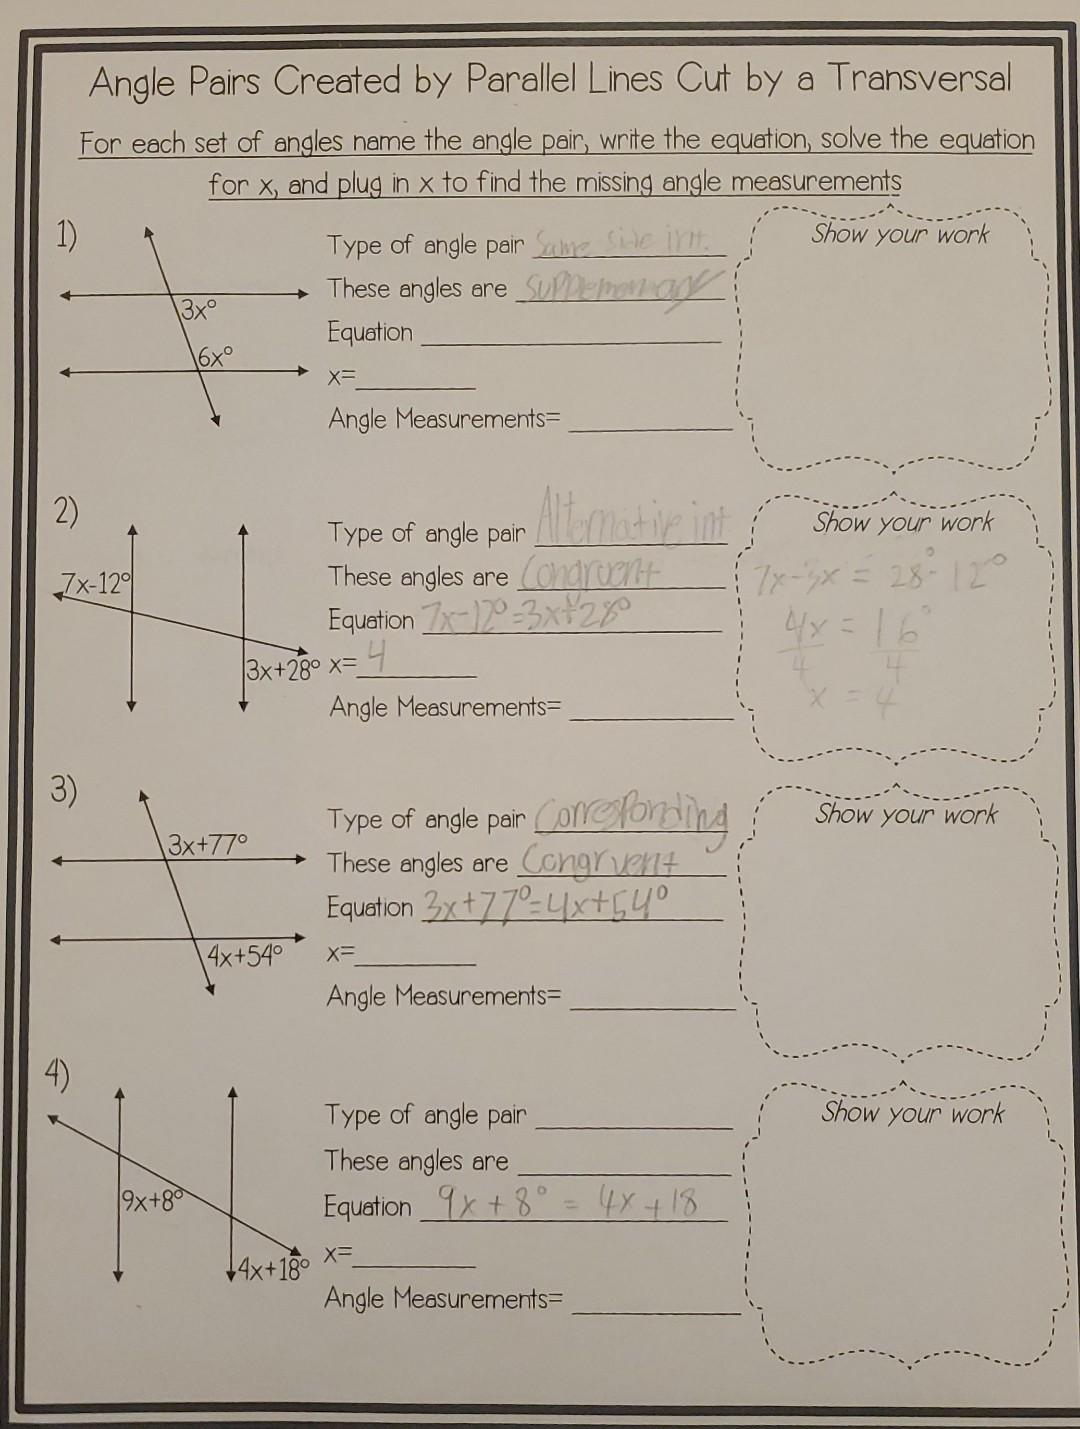 Angle Pairs Created by Parallel Lines Cut by a Transversal
For each set of angles name the angle pair, write the equation, solve the equation
for x, and plug in x to find the missing angle measurements
1)
3x°
6x°
Type of angle pair Same side int.
These angles are supplemenary
Equation
x=
Angle Measurements=
Show your work
2)
7x-12°
3x+28°
Type of angle pair Alternative int
These angles are Congruent
Equation 7x-12°=3x+28°
x= 4
Angle Measurements=
Show your work
7x-3x = 28°-12°
4x = 16°
4 4
x = 4
3)
3x+77°
4x+54°
Type of angle pair Corresponding
These angles are Congruent
Equation 3x+77°=4x+54°
x=
Angle Measurements=
Show your work
4)
9x+8°
4x+18°
Type of angle pair
These angles are
Equation 9x+8° = 4x+18
x=
Angle Measurements=
Show your work